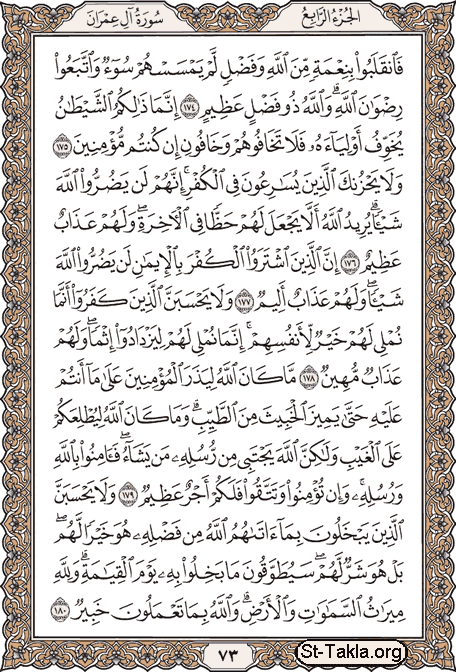 سُورَةُ آلِ عِمْرَانَ الجُزْءُ الرَّابِعُ
فَٱنقَلَبُوا۟ بِنِعْمَةٍ مِّنَ ٱللَّهِ وَفَضْلٍ لَّمْ يَمْسَسْهُمْ سُوٓءٌ وَٱتَّبَعُوا۟
رِضْوَٰنَ ٱللَّهِ ۗ وَٱللَّهُ ذُو فَضْلٍ عَظِيمٍ ١٧٤ إِنَّمَا ذَٰلِكُمُ ٱلشَّيْطَٰنُ
يُخَوِّفُ أَوْلِيَآءَهُۥ فَلَا تَخَافُوهُمْ وَخَافُونِ إِن كُنتُم مُّؤْمِنِينَ ١٧٥
وَلَا يَحْزُنكَ ٱلَّذِينَ يُسَٰرِعُونَ فِى ٱلْكُفْرِ ۚ إِنَّهُمْ لَن يَضُرُّوا۟ ٱللَّهَ
شَيْـًٔا ۗ يُرِيدُ ٱللَّهُ أَلَّا يَجْعَلَ لَهُمْ حَظًّا فِى ٱلْـَٔاخِرَةِ ۖ وَلَهُمْ عَذَابٌ
عَظِيمٌ ١٧٦ إِنَّ ٱلَّذِينَ ٱشْتَرَوُا۟ ٱلْكُفْرَ بِٱلْإِيمَٰنِ لَن يَضُرُّوا۟ ٱللَّهَ
شَيْـًٔا ۖ وَلَهُمْ عَذَابٌ أَلِيمٌ ١٧٧ وَلَا يَحْسَبَنَّ ٱلَّذِينَ كَفَرُوٓا۟ أَنَّمَا
نُمْلِى لَهُمْ خَيْرٌ لِّأَنفُسِهِمْ ۚ إِنَّمَا نُمْلِى لَهُمْ لِيَزْدَادُوٓا۟ إِثْمًا ۚ وَلَهُمْ
عَذَابٌ مُّهِينٌ ١٧٨ مَّا كَانَ ٱللَّهُ لِيَذَرَ ٱلْمُؤْمِنِينَ عَلَىٰ مَآ أَنتُمْ
عَلَيْهِ حَتَّىٰ يَمِيزَ ٱلْخَبِيثَ مِنَ ٱلطَّيِّبِ ۗ وَمَا كَانَ ٱللَّهُ لِيُطْلِعَكُمْ
عَلَى ٱلْغَيْبِ وَلَٰكِنَّ ٱللَّهَ يَجْتَبِى مِن رُّسُلِهِۦ مَن يَشَآءُ ۖ فَـَٔامِنُوا۟ بِٱللَّهِ
وَرُسُلِهِۦ ۚ وَإِن تُؤْمِنُوا۟ وَتَتَّقُوا۟ فَلَكُمْ أَجْرٌ عَظِيمٌ ١٧٩ وَلَا يَحْسَبَنَّ
ٱلَّذِينَ يَبْخَلُونَ بِمَآ ءَاتَىٰهُمُ ٱللَّهُ مِن فَضْلِهِۦ هُوَ خَيْرًا لَّهُم ۖ
بَلْ هُوَ شَرٌّ لَّهُمْ ۖ سَيُطَوَّقُونَ مَا بَخِلُوا۟ بِهِۦ يَوْمَ ٱلْقِيَٰمَةِ ۗ وَلِلَّهِ
مِيرَٰثُ ٱلسَّمَٰوَٰتِ وَٱلْأَرْضِ ۗ وَٱللَّهُ بِمَا تَعْمَلُونَ خَبِيرٌ ١٨٠
٧٣
St-Takla.org